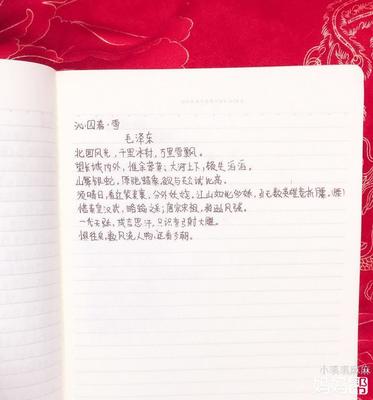 沁园春·雪
毛泽东
北国风光，千里冰封，万里雪飘。
望长城内外，惟余莽莽；大河上下，顿失滔滔。
山舞银蛇，原驰蜡象，欲与天公试比高。
须晴日，看红装素裹，分外妖娆。江山如此多娇，引无数英雄竞折腰。(腰)
惜秦皇汉武，略输文采；唐宗宋祖，稍逊风骚。
一代天骄，成吉思汗，只识弯弓射大雕。
俱往矣，数风流人物，还看今朝。
小淇淇麻麻
妈妈帮